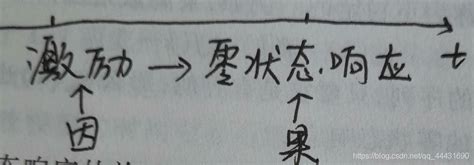 激励 → 零状态响应 t
↑ ↑
因 果
https://blog.csdn.net/qq_44431690